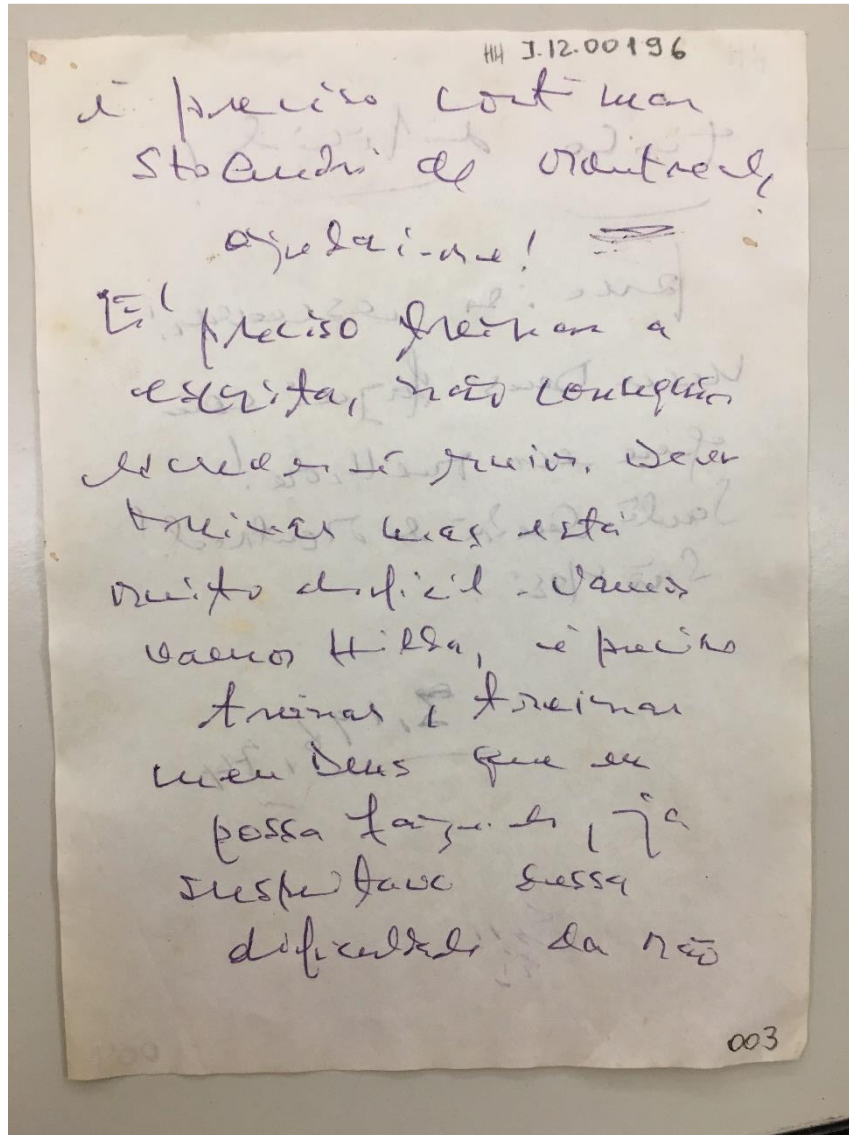 HH I.12.00196
é preciso continuar
Sto André de Montreal,
ajudai-me!
É preciso treinar a
escrita, não consegui
escrever é ruim. Devo
treinar mas está
muito dificil. Vamos
vamos Hilda, é preciso
treinar, treinar
meu Deus que eu
possa fazer, já
suspeitava dessa
dificuldade da não
003